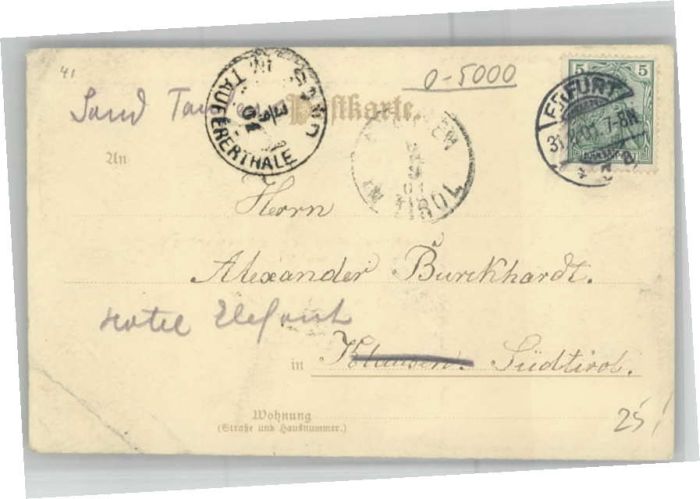 41
0-5000
5 5
Sand
Postkarte.
SAND IM TAUFERERTHALE
ERFURT
7-8N.
TIROL
An
Herrn
Alexander Burckhardt.
Hotel Elefant
in Klausen. Südtirol.
Wohnung
(Straße und Hausnummer.)
25